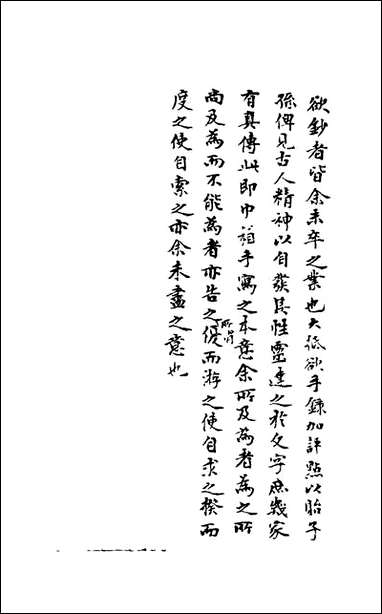 欲鈔者皆余未卒之業也大低欲手錄加評點以貽子
孫俾見古人精神以自發其性靈達之於文字庶幾家
有真傳此即巾箱手寫之本意余所及為者為之所
尚及為而不能為者亦告之所謂優而游之使自求之揆而
度之使自索之亦余未盡之意也